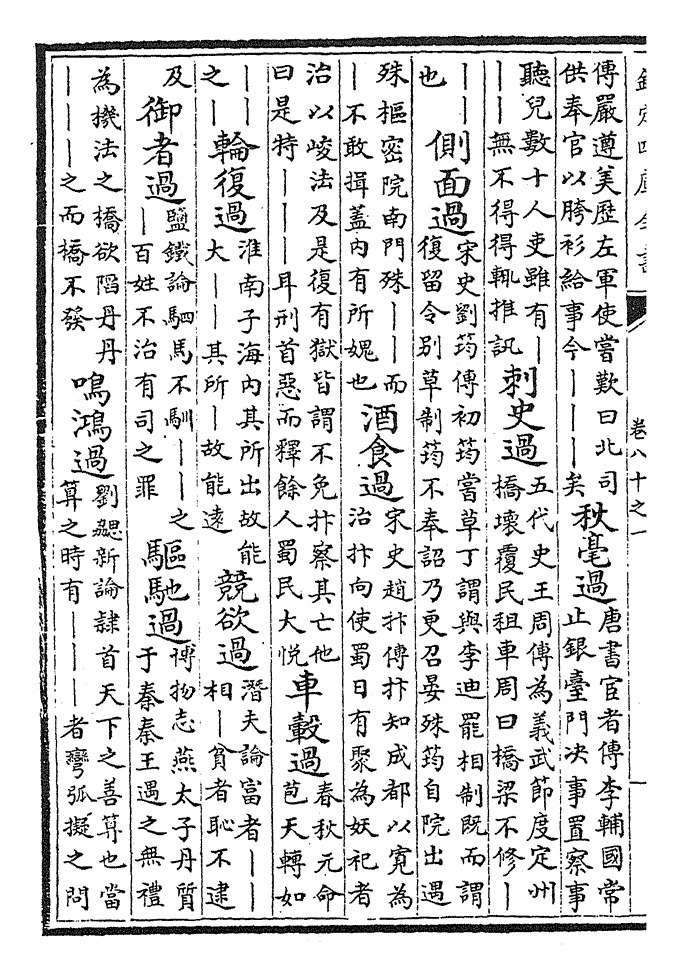 欽定四庫全書
卷八十之一
傳嚴遵美歷左軍使嘗歎曰北司
供奉官以胯衫給事今｜｜｜矣
秋毫過
唐書宦者傳李輔國常
止銀臺門决事置察事
聽兒數十人吏雖有｜
｜｜無不得得輒推訊
刺史過
五代史王周傳為義武節度定州
橋壞覆民租車周曰橋梁不修｜
｜｜
也
側面過
宋史劉筠傳初筠嘗草丁謂與李迪罷相制既而謂
復留令别草制筠不奉詔乃更召晏殊筠自院出遇
殊樞密院南門殊｜｜而
｜不敢揖蓋内有所媿也
酒食過
宋史趙抃傳抃知成都以寛為
治抃向使蜀日有聚為妖祀者
治以峻法及是復有獄皆謂不免抃察其亡他
曰是特｜｜｜耳刑首惡而釋餘人蜀民大悦
車轂過
春秋元命
苞天轉如
｜｜
之｜
輪復過
淮南子海内其所出故能
大｜｜其所｜故能遠
競欲過
潛夫論富者｜｜
相｜貧者恥不逮
及
御者過
鹽鐵論駟馬不馴｜｜之
｜百姓不治有司之罪
驅馳過
博物志燕太子丹質
于秦秦王遇之無禮
為機法之橋欲陷丹丹
｜｜｜之而橋不發
鳴鴻過
劉勰新論隸首天下之善算也當
算之時有｜｜｜者彎弧擬之問